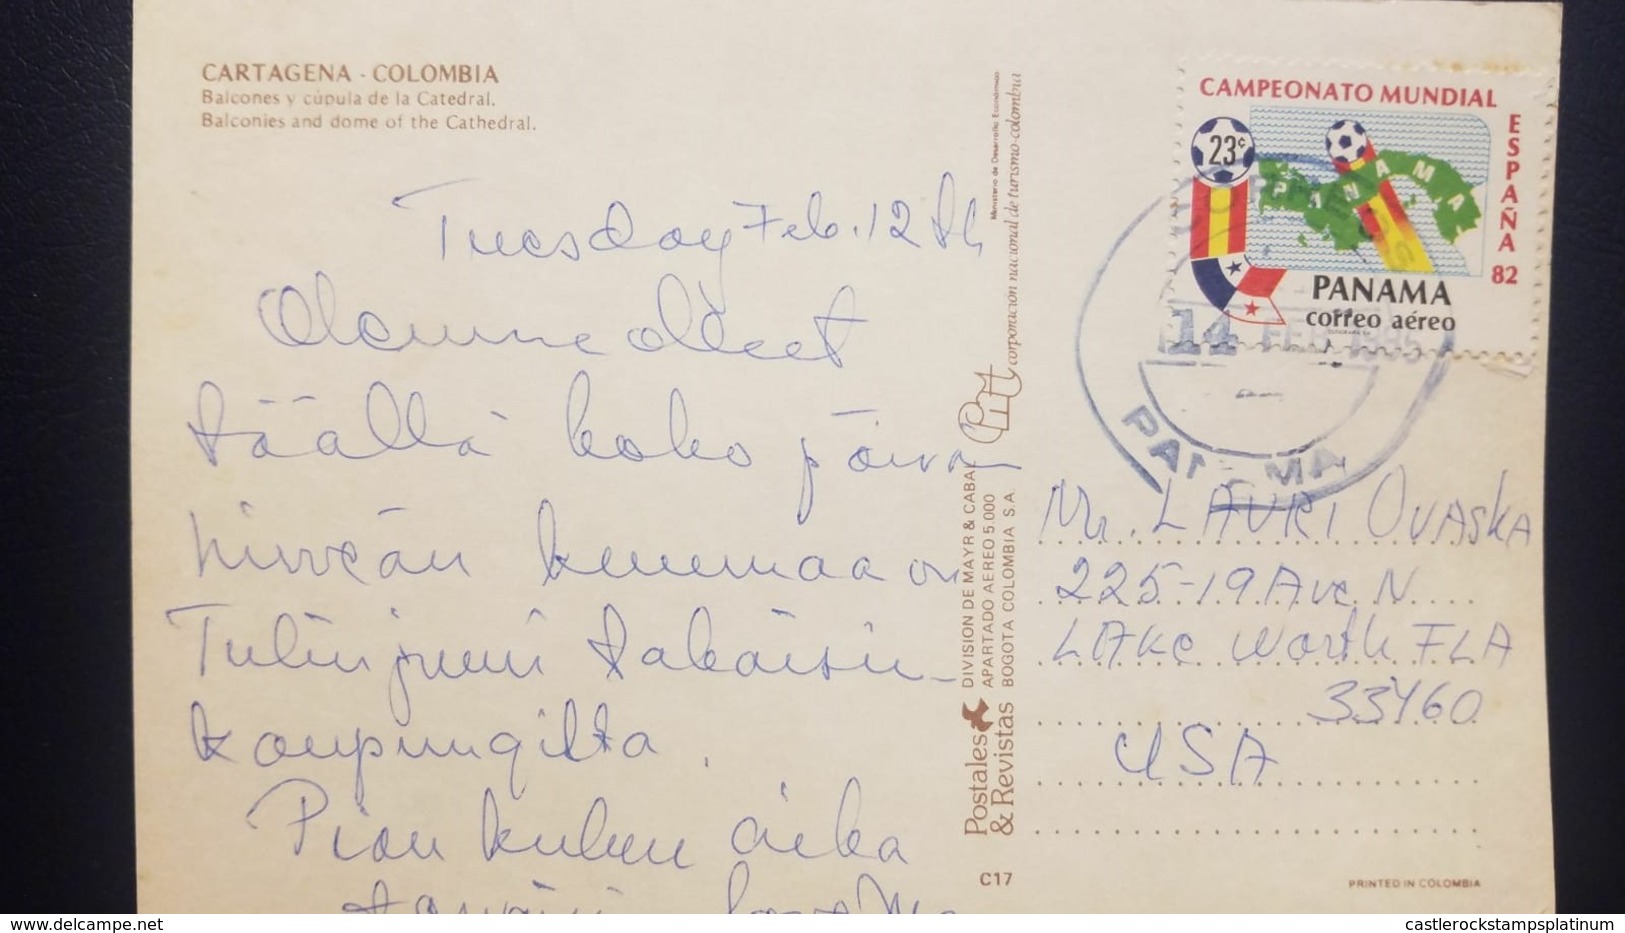 CARTAGENA - COLOMBIA
Balcones y cúpula de la Catedral.
Balconies and dome of the Cathedral.
Tuesday Feb. 12th
Olemme olleet
täällä koko päivän
hirveän kuumaa on
Tulin juuri takaisin
kaupungilta.
Pian kuluu aika
Ministerio de Desarrollo Económico
corporación nacional de turismo-colombia
DIVISION DE MAYR & CABAL
APARTADO AEREO 5.000
BOGOTA COLOMBIA S.A.
Postales
& Revistas
C17
CAMPEONATO MUNDIAL
ESPAÑA 82
23c
PANAMA
PANAMA
correo aéreo
14 FEB 1985
PANAMA
Mr. LAURI OVASKA
225-19 Ave N
LAKE Worth FLA
33460
USA
PRINTED IN COLOMBIA
castlerockstampsplatinum
www.delcampe.net